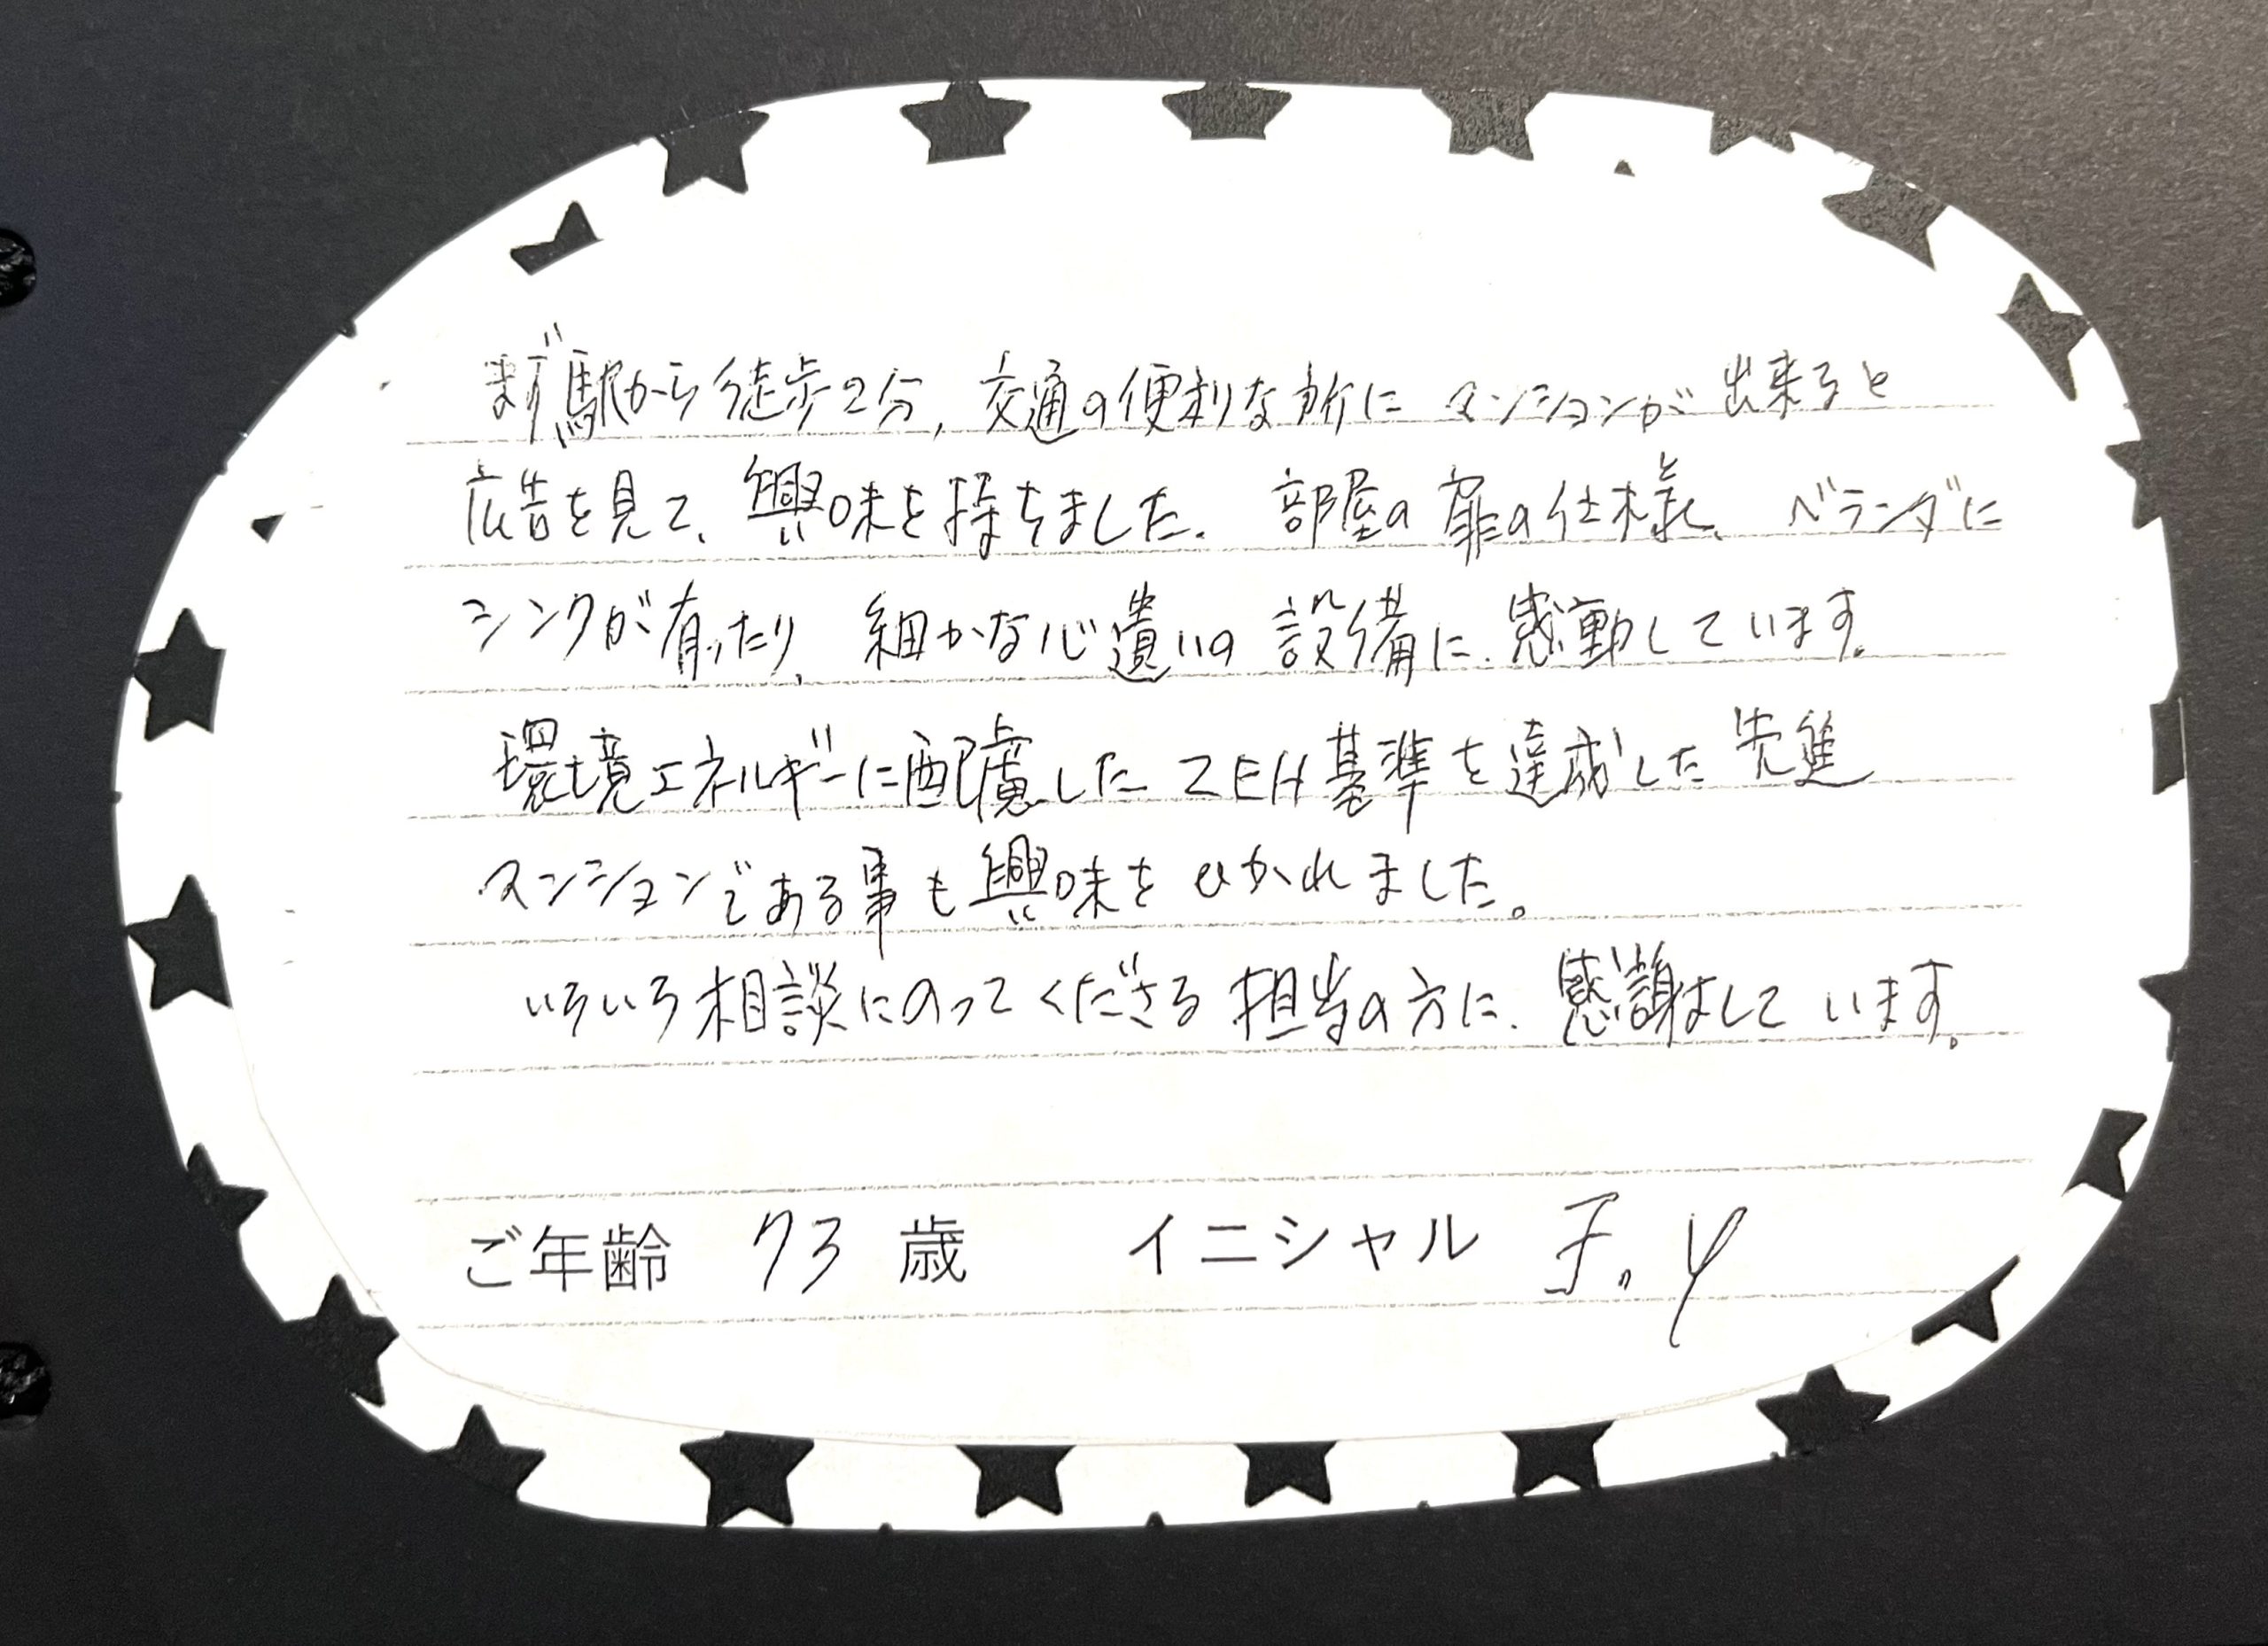 まず駅から徒歩2分、交通の便利な所にマンションが出来ると
広告を見て、興味を持ちました。部屋の扉の仕様、ベランダに
シンクが有ったり、細かな心遣いの設備に、感動しています。
環境エネルギーに配慮したZEH基準を達成した先進
マンションである事も興味をひかれました。
いろいろ相談にのってくださる担当の方に、感謝しています。
ご年齢 73 歳 イニシャル F. Y